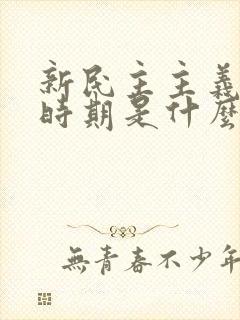 新民主主義
時期是什麼
無青春不少年